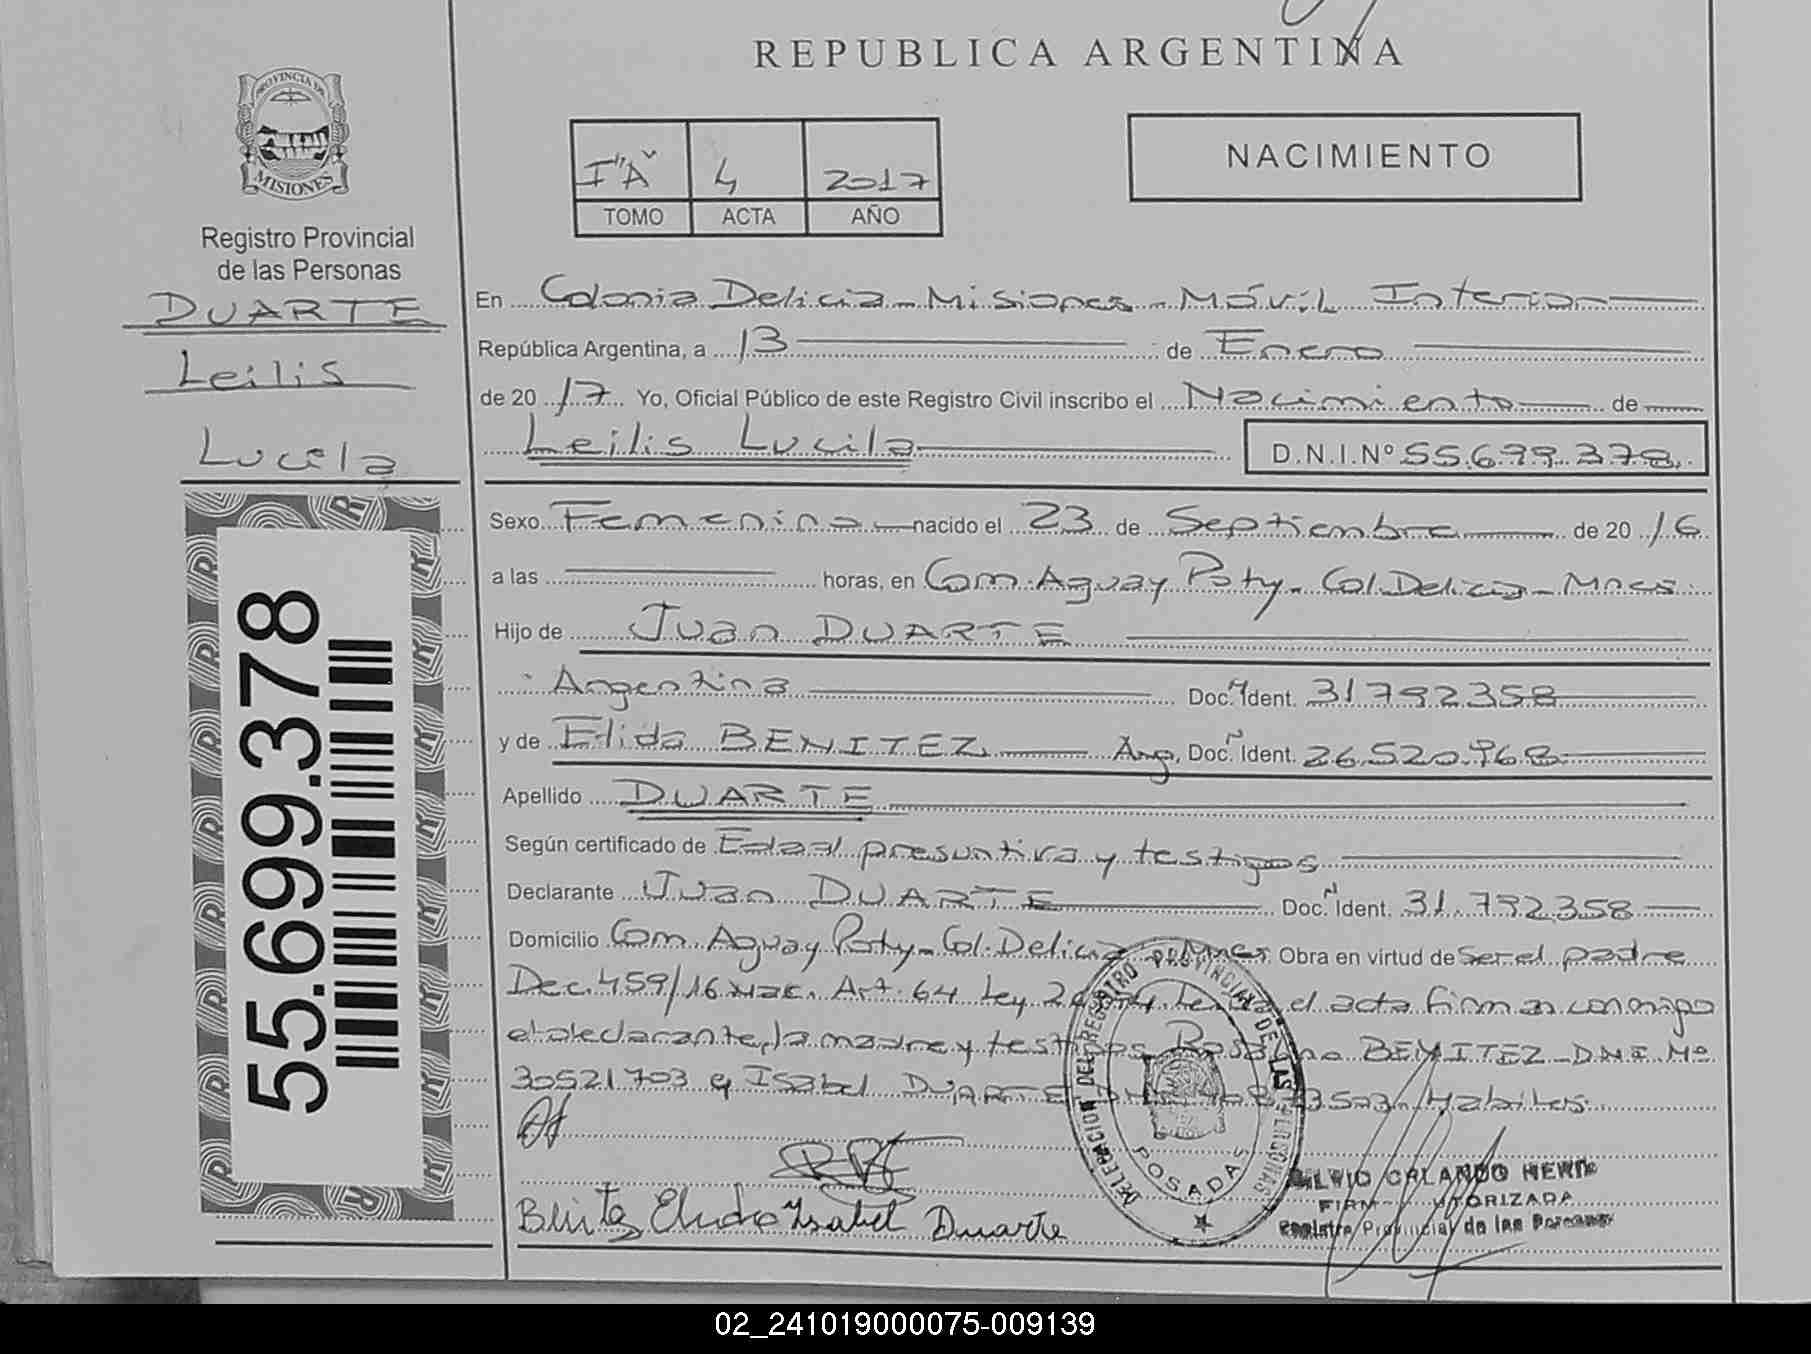 REPUBLICA ARGENTINA
PROVINCIA DE
MISIONES
Registro Provincial
de las Personas
DUARTE
Leilis
Lucila
55.699.378
I"A" 4 2017
TOMO ACTA AÑO
NACIMIENTO
En Colonia Delicia - Misiones - Móvil Interior
República Argentina, a 13 de Enero
de 2017 Yo, Oficial Público de este Registro Civil inscribo el Nacimiento de
Leilis Lucila D.N.I.Nº 55.699.378
Sexo Femenino nacido el 23 de Septiembre de 2016
a las horas, en Com. Aguay Poty - Col. Delicia - Mnes
Hijo de Juan DUARTE
Argentina Doc. Ident. 31792358
y de Elida BENITEZ Arg. Doc. Ident. 26.520.968
Apellido DUARTE
Según certificado de Edad presuntiva y testigos
Declarante Juan DUARTE Doc. Ident. 31.792.358
Domicilio Com. Aguay Poty - Col. Delicia - Mnes Obra en virtud de ser el padre
Dec. 459/16 Nac. Art. 64 Ley el acta firman conmigo
el declarante, la madre y testigos BENITEZ - D.N.I. Nº
30521703 y Isabel DUARTE Hábiles
Benitez Elida Isabel Duarte
DELEGACION DEL REGISTRO PROVINCIAL DE LAS PERSONAS
POSADAS
SILVIO ORLANDO
FIRMA AUTORIZADA
Registro Provincial de las Personas
02_241019000075-009139